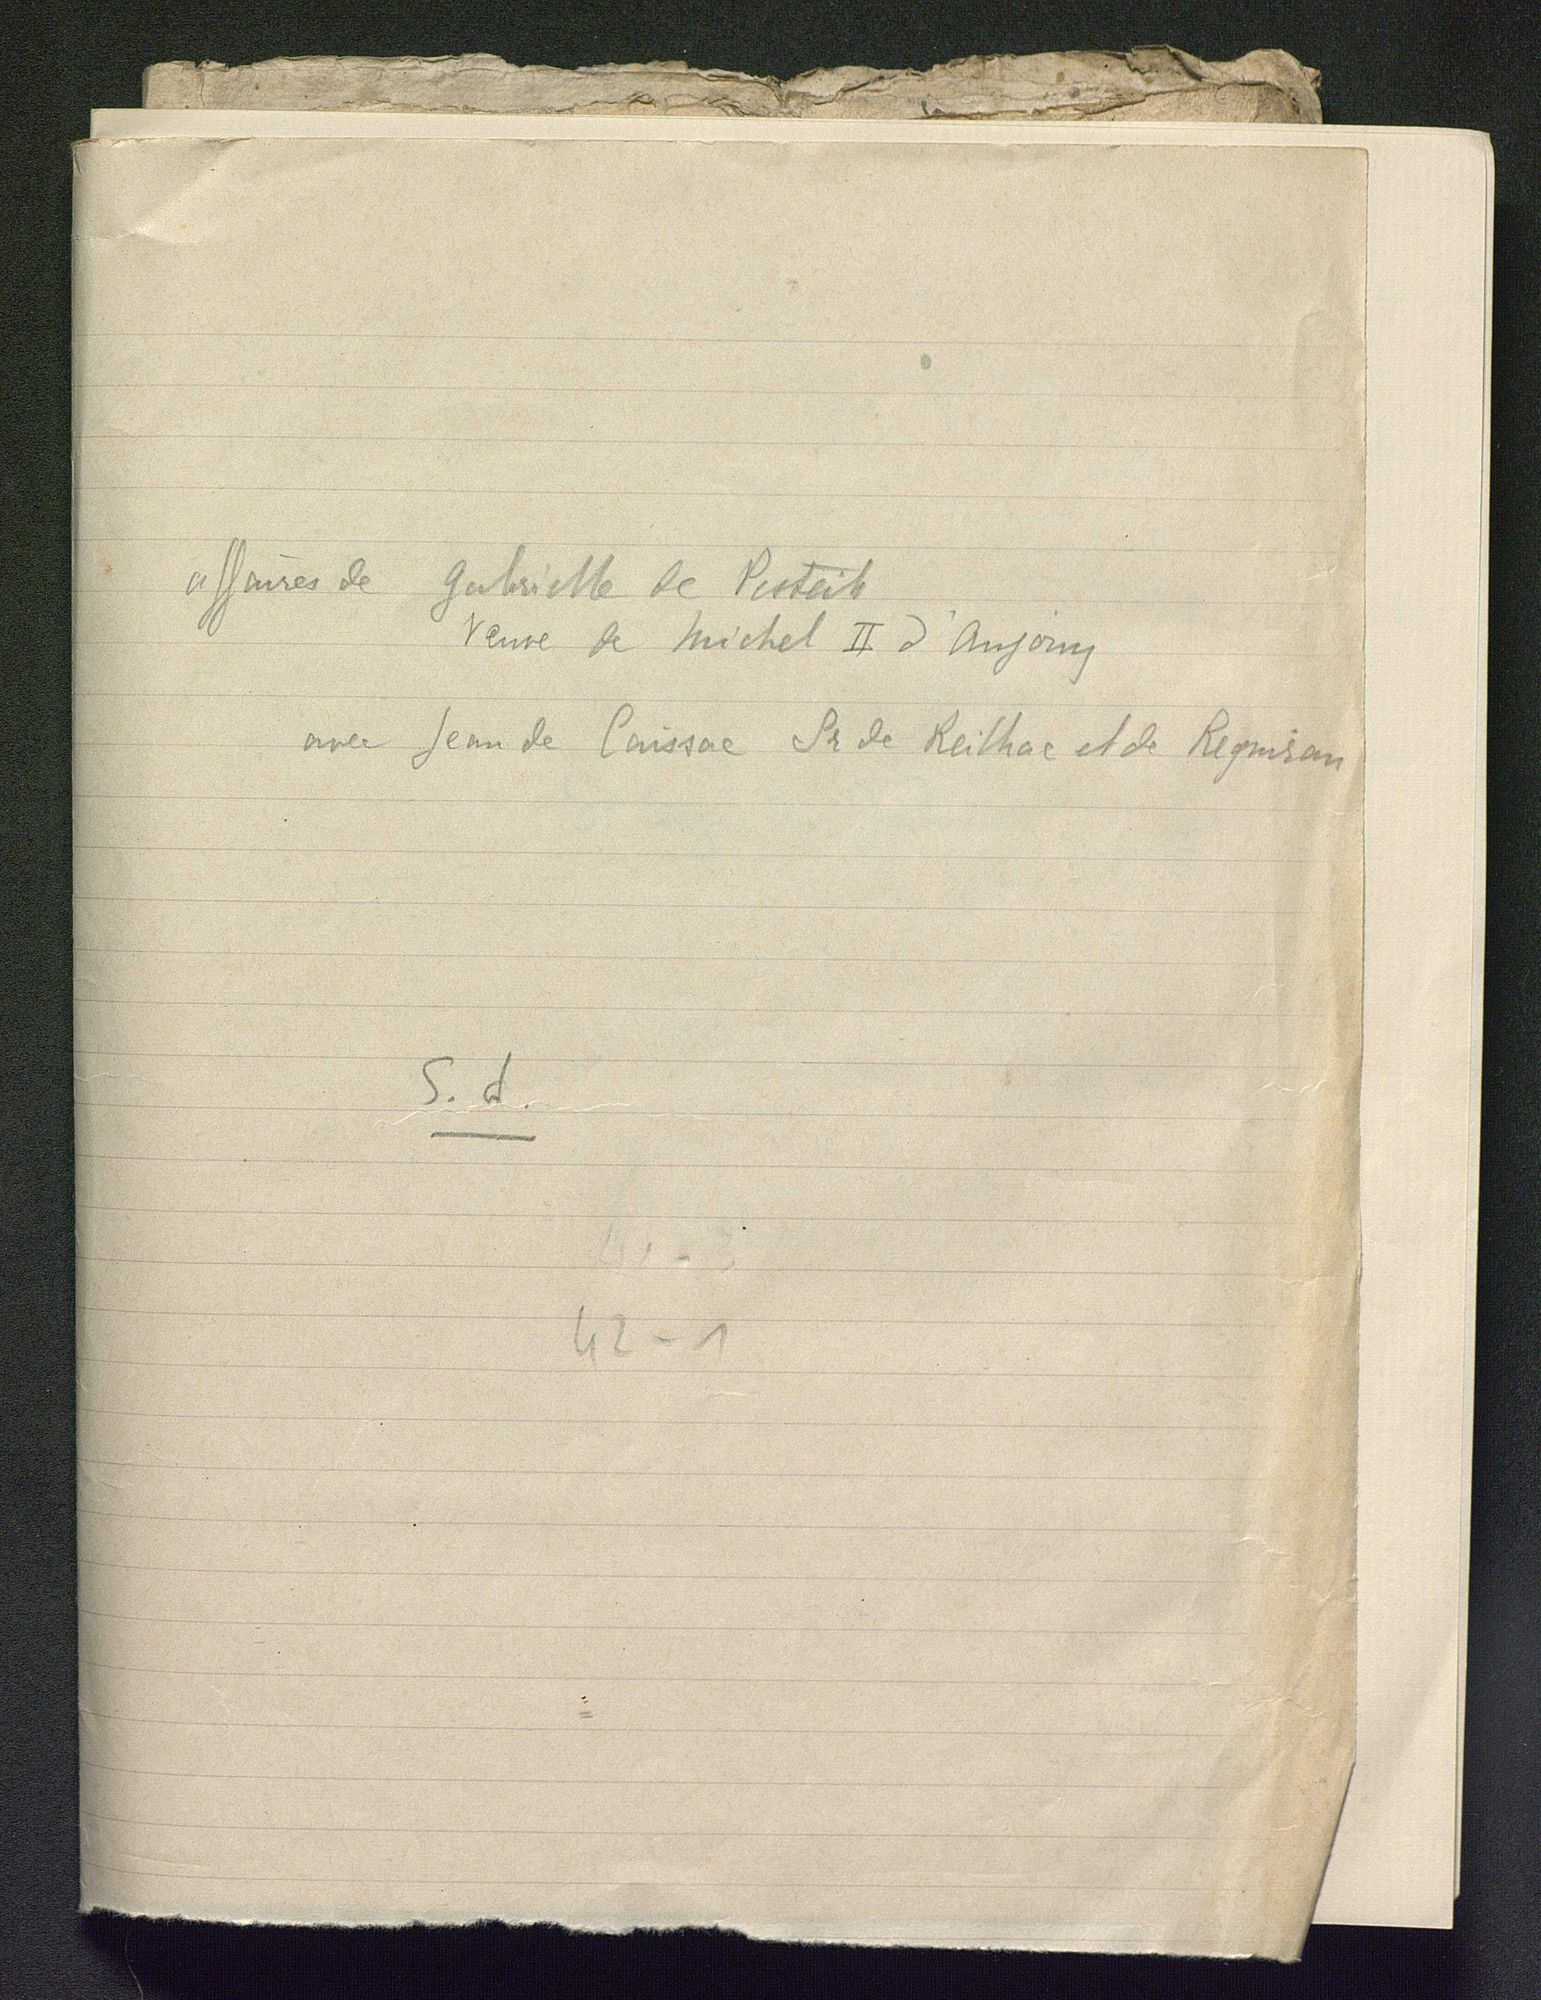 affaires de Gabrielle de Pesteils
Veuve de Michel II d'Anjony
avec Jean de Caissac Sr de Reilhac et de Requiran
S. d.
42-1